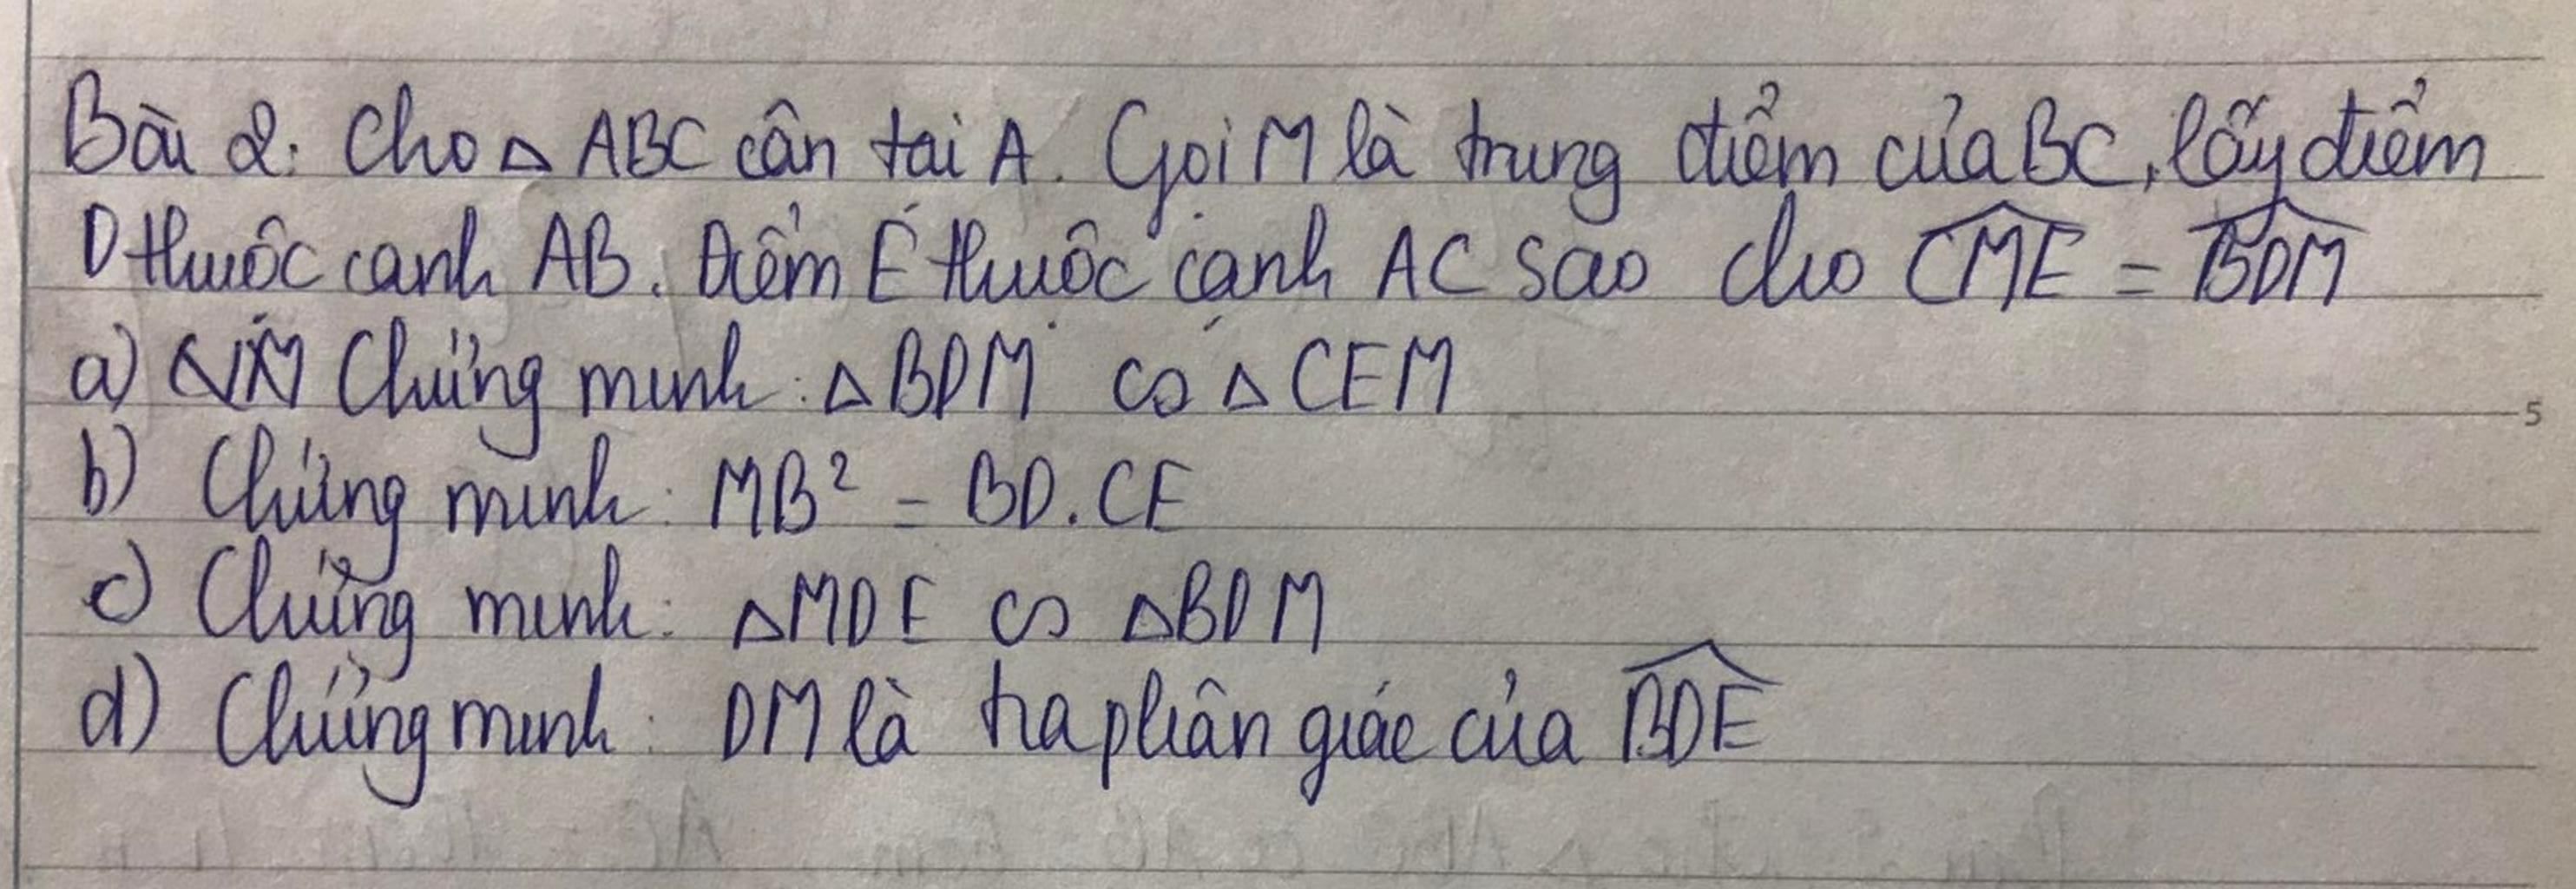 Bài 2: Cho △ ABC cân tại A. Gọi M là trung điểm của BC, lấy điểm
D thuộc cạnh AB. Điểm E thuộc cạnh AC sao cho \widehat{CME} = \widehat{BDM}
a) Chứng minh: △BDM ∽ △CEM
b) Chứng minh: MB² = BD.CE
c) Chứng minh: △MDE ∽ △BDM
d) Chứng minh: DM là tia phân giác của \widehat{BDE}
5